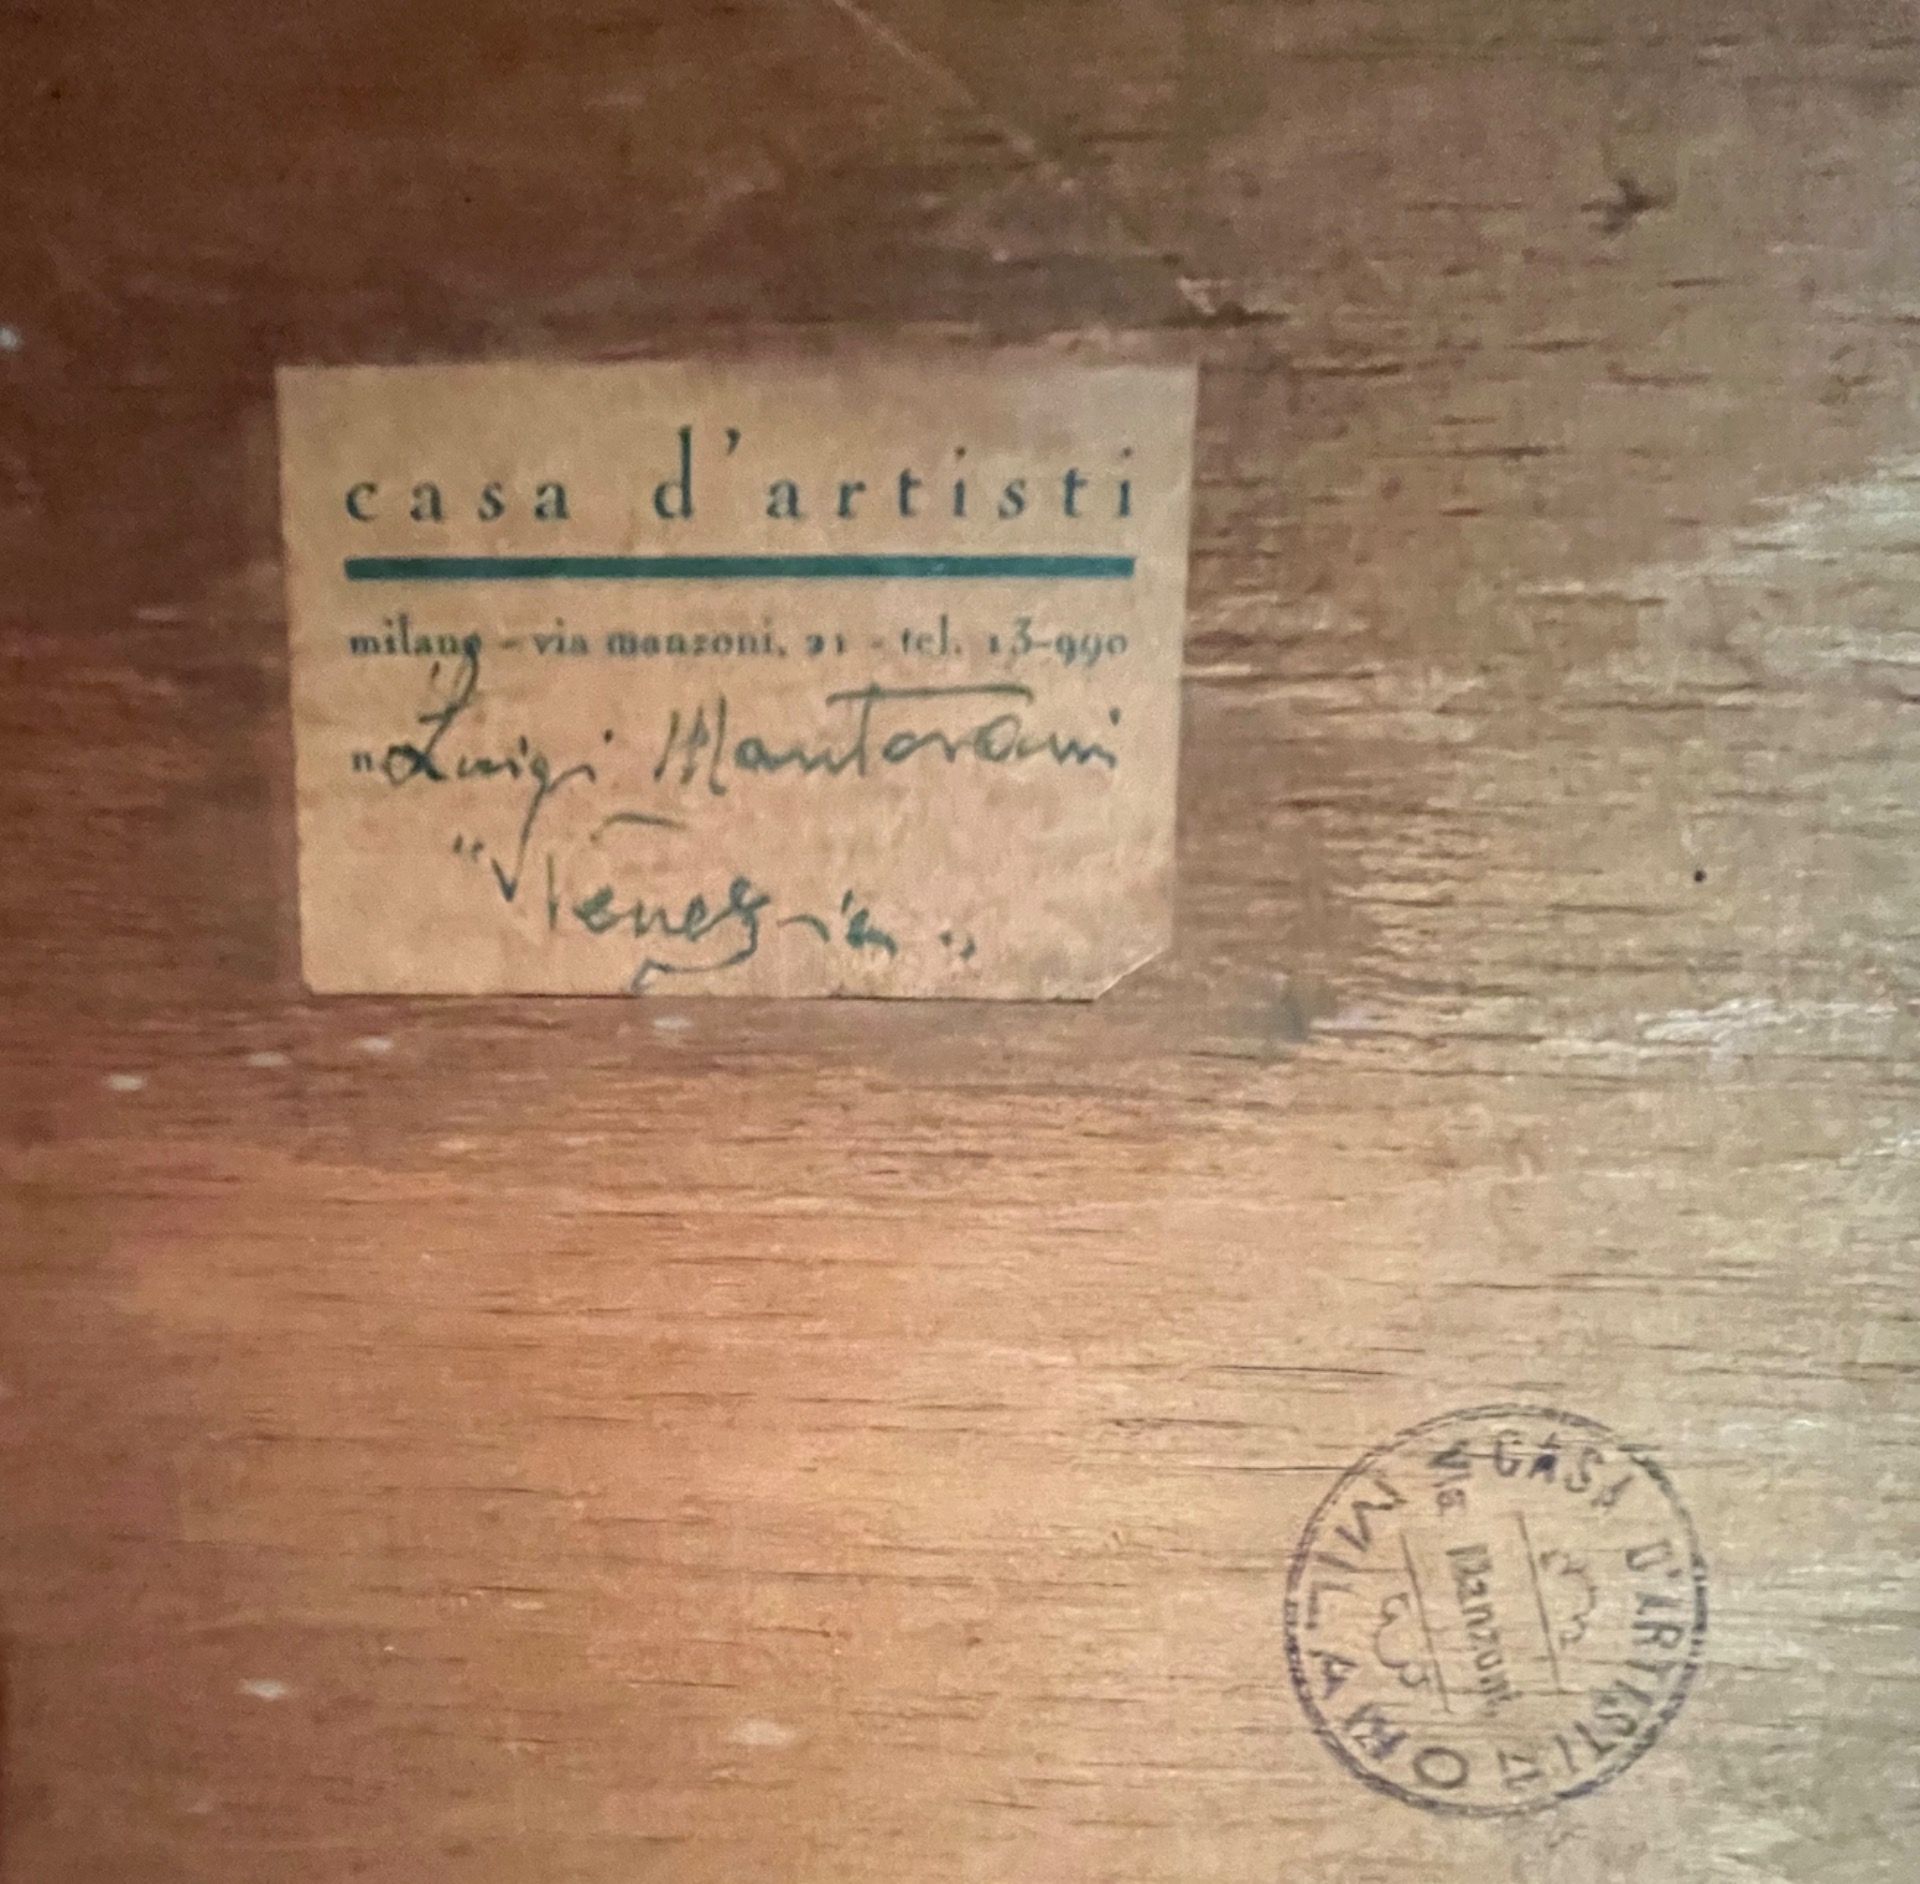 casa d'artisti
milano - via manzoni, 21 - tel. 13-990
n. Luigi Mantovani
"Venezia"
CASA D'ARTISTI
Via Manzoni
MILANO